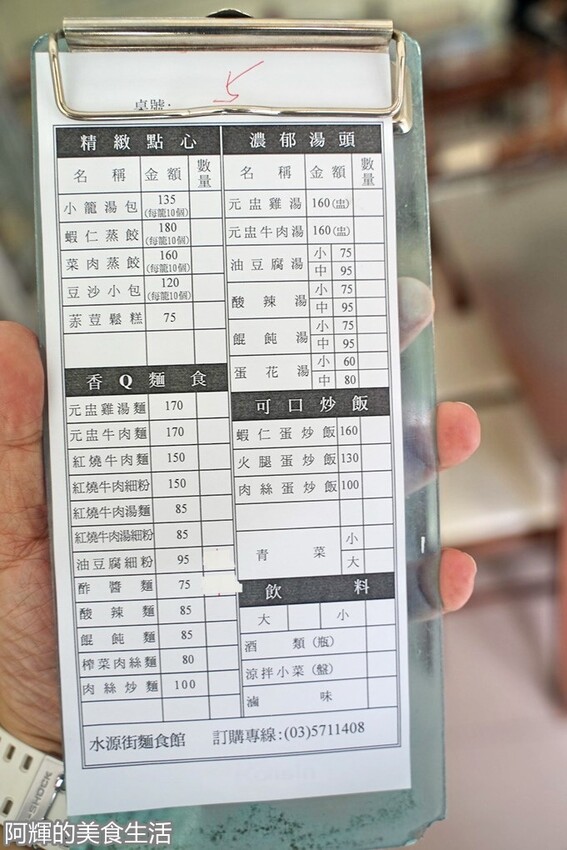 5
桌號:
精緻點心
名稱 金額 數量
小籠湯包 135 (每籠10個)
蝦仁蒸餃 180 (每籠10個)
菜肉蒸餃 160 (每籠10個)
豆沙小包 120 (每籠10個)
赤荳鬆糕 75
香Q麵食
元盅雞湯麵 170
元盅牛肉麵 170
紅燒牛肉麵 150
紅燒牛肉細粉 150
紅燒牛肉湯麵 85
紅燒牛肉湯細粉 85
油豆腐細粉 95
酢醬麵 75
酸辣麵 85
餛飩麵 85
榨菜肉絲麵 80
肉絲炒麵 100
濃郁湯頭
名稱 金額 數量
元盅雞湯 160(盅)
元盅牛肉湯 160(盅)
油豆腐湯 小 75
中 95
酸辣湯 小 75
中 95
餛飩湯 小 75
中 95
蛋花湯 小 60
中 80
可口炒飯
蝦仁蛋炒飯 160
火腿蛋炒飯 130
肉絲蛋炒飯 100
青菜 小
大
飲料
大 小
酒類(瓶)
涼拌小菜(盤)
滷味
水源街麵食館 訂購專線:(03)5711408
阿輝的美食生活